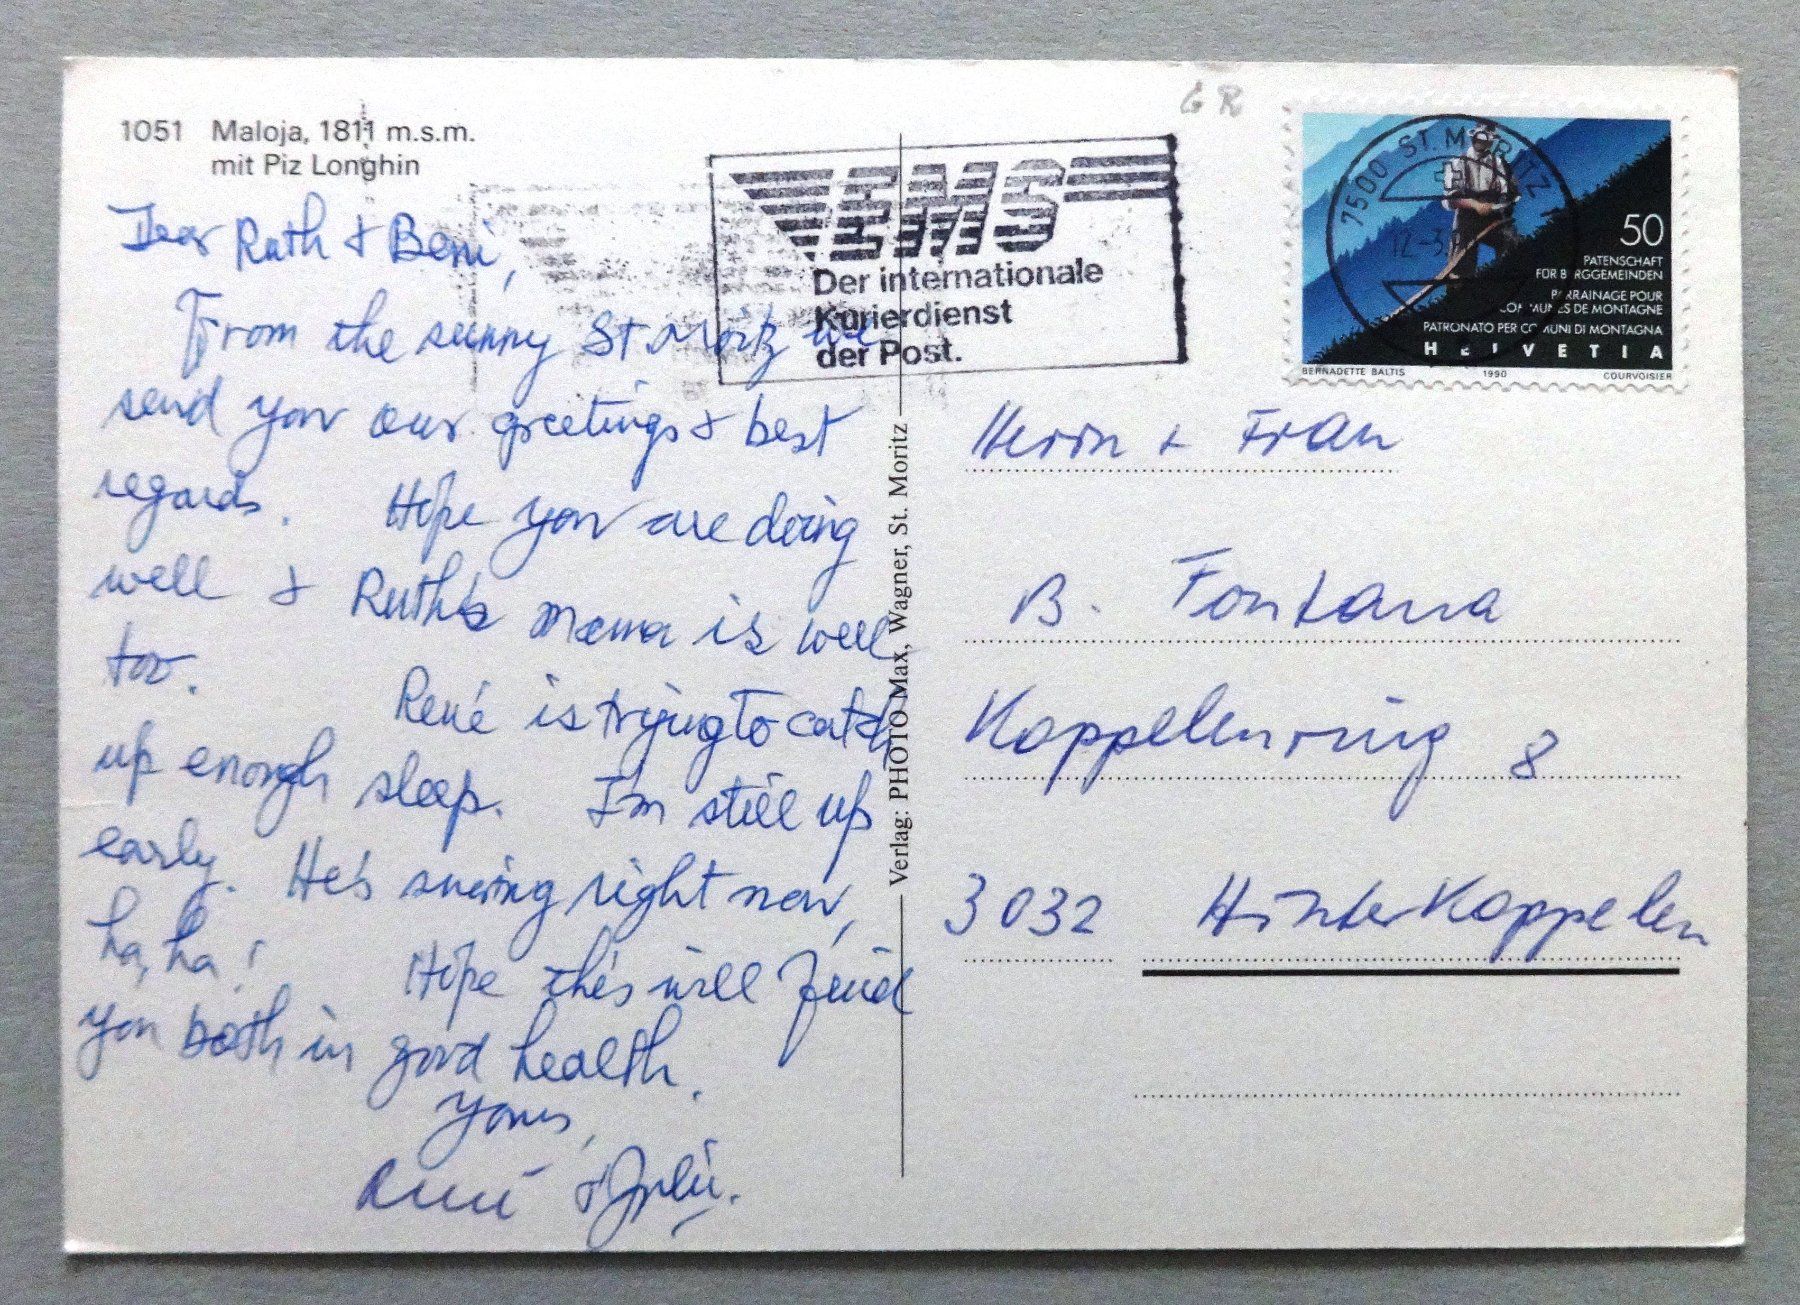 1051 Maloja, 1811 m.s.m.
mit Piz Longhin
Dear Ruth + Beni,
From the sunny St. Moritz we
send you our greetings + best
regards. Hope you are doing
well + Ruth's mama is well
too. René is trying to catch
up enough sleep. I'm still up
early. He's snoring right now,
ha, ha! Hope this will find
you both in good health.
Yours,
René +
Verlag: PHOTO Max, Wagner, St. Moritz
GR
EMS
Der internationale
Kurierdienst
der Post.
7500 ST. MORITZ
12.-3.
50
PATENSCHAFT
FÜR BERGGEMEINDEN
PARRAINAGE POUR
COMMUNES DE MONTAGNE
PATRONATO PER COMUNI DI MONTAGNA
HELVETIA
BERNADETTE BALTIS 1990 COURVOISIER
Herrn + Frau
B. Fontana
Kappelenring 8
3032 Hinterkappelen